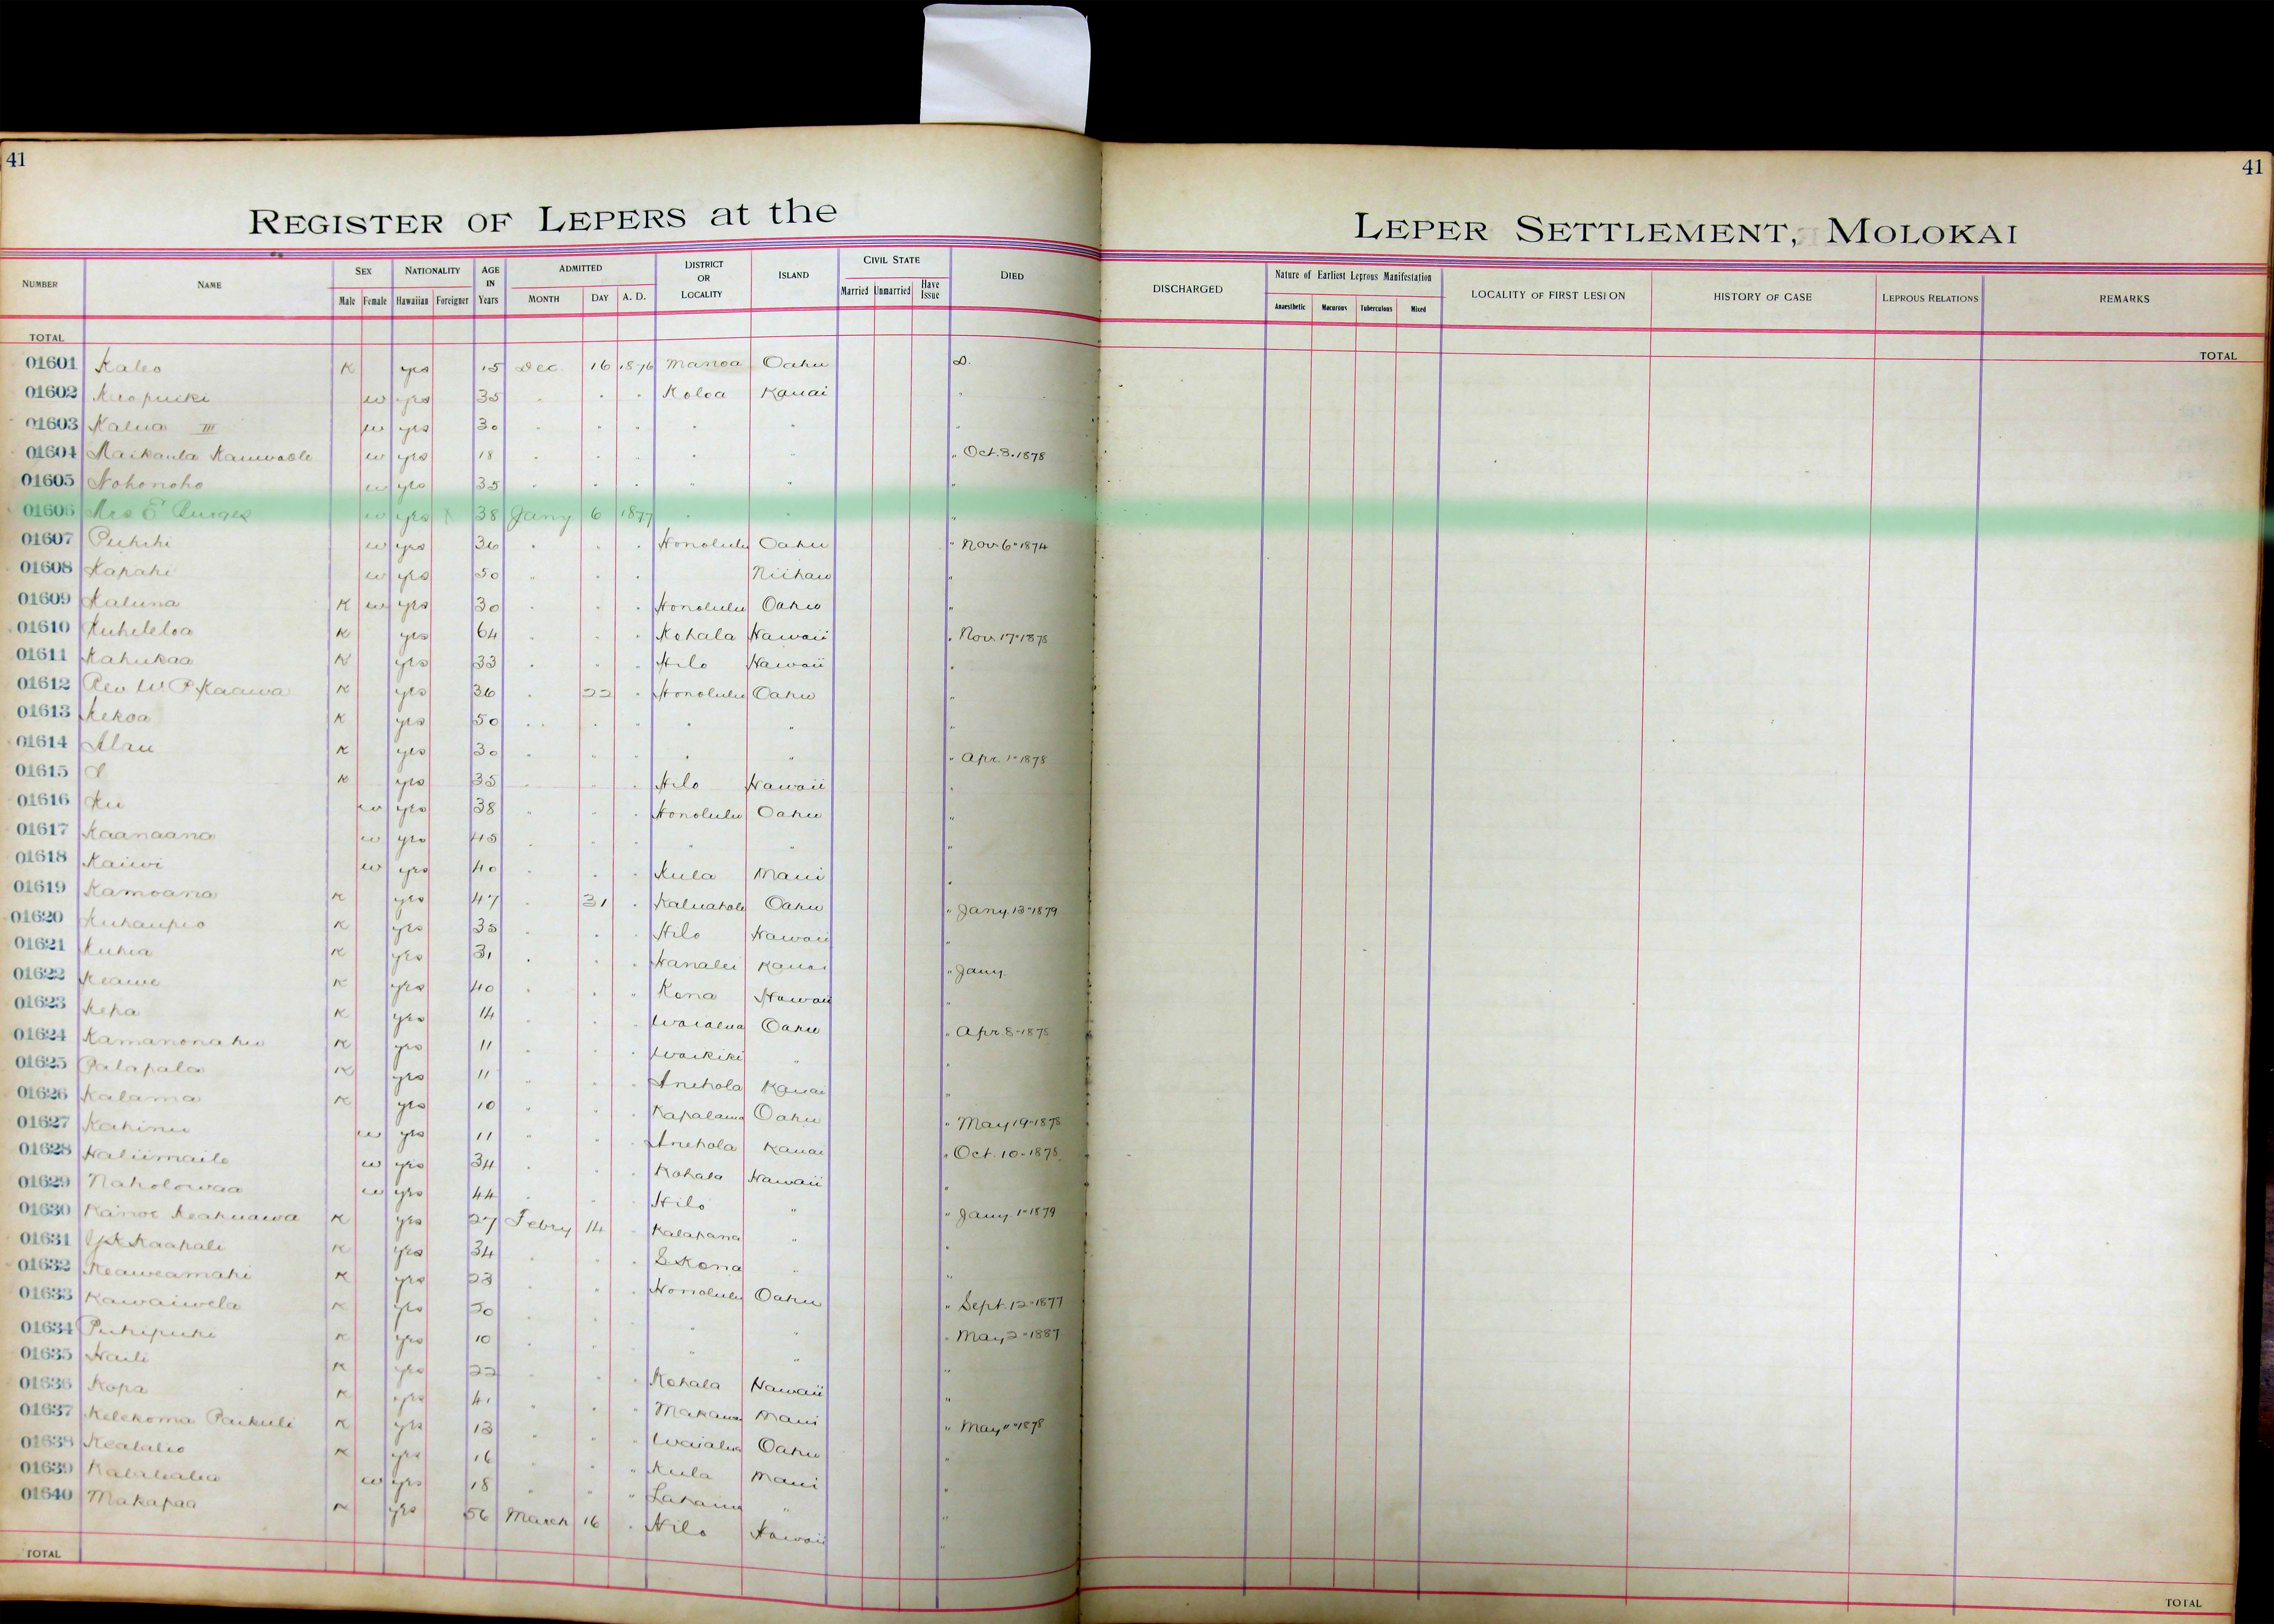 41
41
REGISTER OF LEPERS at the
LEPER SETTLEMENT, MOLOKAI
NUMBER NAME SEX Male Female NATIONALITY Hawaiian Foreigner AGE IN Years ADMITTED MONTH DAY A. D. DISTRICT OR LOCALITY ISLAND CIVIL STATE Married Unmarried Have Issue DIED
DISCHARGED Nature of Earliest Leprous Manifestation Anaesthetic Macurous Tuberculous Mixed LOCALITY OF FIRST LESION HISTORY OF CASE LEPROUS RELATIONS REMARKS
TOTAL
TOTAL
01601 Kaleo K yes 15 Dec 16 1876 Manoa Oahu D.
01602 w yes 35 " " " Koloa Kauai "
01603 Kalua III w yes 30 " " " " " "
01604 Maikaula w yes 18 " " " " " " Oct. 3. 1878
01605 Nohonoho w yes 35 " " " " " "
01606 Mrs E Burges w yes x 38 Jany 6 1877 " " "
01607 Puhihi w yes 36 " " " Honolulu Oahu " Nov 6" 1874
01608 Kapahi w yes 50 " " " Niihau "
01609 Kaluna K w yes 30 " " " Honolulu Oahu "
01610 Kuheleloa K yes 64 " " " Kohala Hawaii " Nov 17" 1878
01611 Kahukaa K yes 33 " " " Hilo Hawaii "
01612 Rev W. P. Kaawa K yes 36 " 22 " Honolulu Oahu "
01613 Kekoa K yes 50 " " " " " "
01614 Alau K yes 30 " " " " " " Apr. 1" 1878
01615 K yes 35 " " " Hilo Hawaii "
01616 Ku w yes 38 " " " Honolulu Oahu "
01617 Kaanaana w yes 45 " " " " " "
01618 Kaiwi w yes 40 " " " Kula Maui "
01619 Kamoana K yes 47 " 31 " Kaluahole Oahu " Jany. 13" 1879
01620 Kuhaupio K yes 35 " " " Hilo Hawaii "
01621 Kuhia K yes 31 " " " Hanalei Kauai " Jany.
01622 Keawe K yes 40 " " " Kona Hawaii "
01623 Kepa K yes 14 " " " Waialua Oahu " Apr. 8" 1878
01624 Kamanonahu K yes 11 " " " Waikiki " "
01625 Palapala K yes 11 " " " Anehola Kauai "
01626 Kalama K yes 10 " " " Kapalama Oahu " May 19" 1878
01627 Kahinu w yes 11 " " " Anehola Kauai " Oct. 10" 1878
01628 Haliimaile w yes 34 " " " Kohala Hawaii "
01629 Naholowaa w yes 44 " " " Hilo " " Jany. 1" 1879
01630 Kanoe Keakuawa K yes 27 Febry 14 " Kalapana " "
01631 Kaapale K yes 34 " " " S Kona " "
01632 Keaweamahi K yes 23 " " " Honolulu Oahu " Sept. 12" 1877
01633 Kawaiwela K yes " " " " " " May 2" 1887
01634 Puhipuhi K yes 10 " " " " " "
01635 Haili K yes 22 " " " Kohala Hawaii "
01636 Kopa K yes 41 " " " Makawao Maui " May 11" 1878
01637 Kelekoma Paikuli K yes 13 " " " Waialua Oahu "
01638 Kealalio K yes 16 " " " Kula Maui "
01639 w yes 18 " " " Lahaina " "
01640 Makapaa K yes 56 March 16 " Hilo Hawaii "
TOTAL
TOTAL